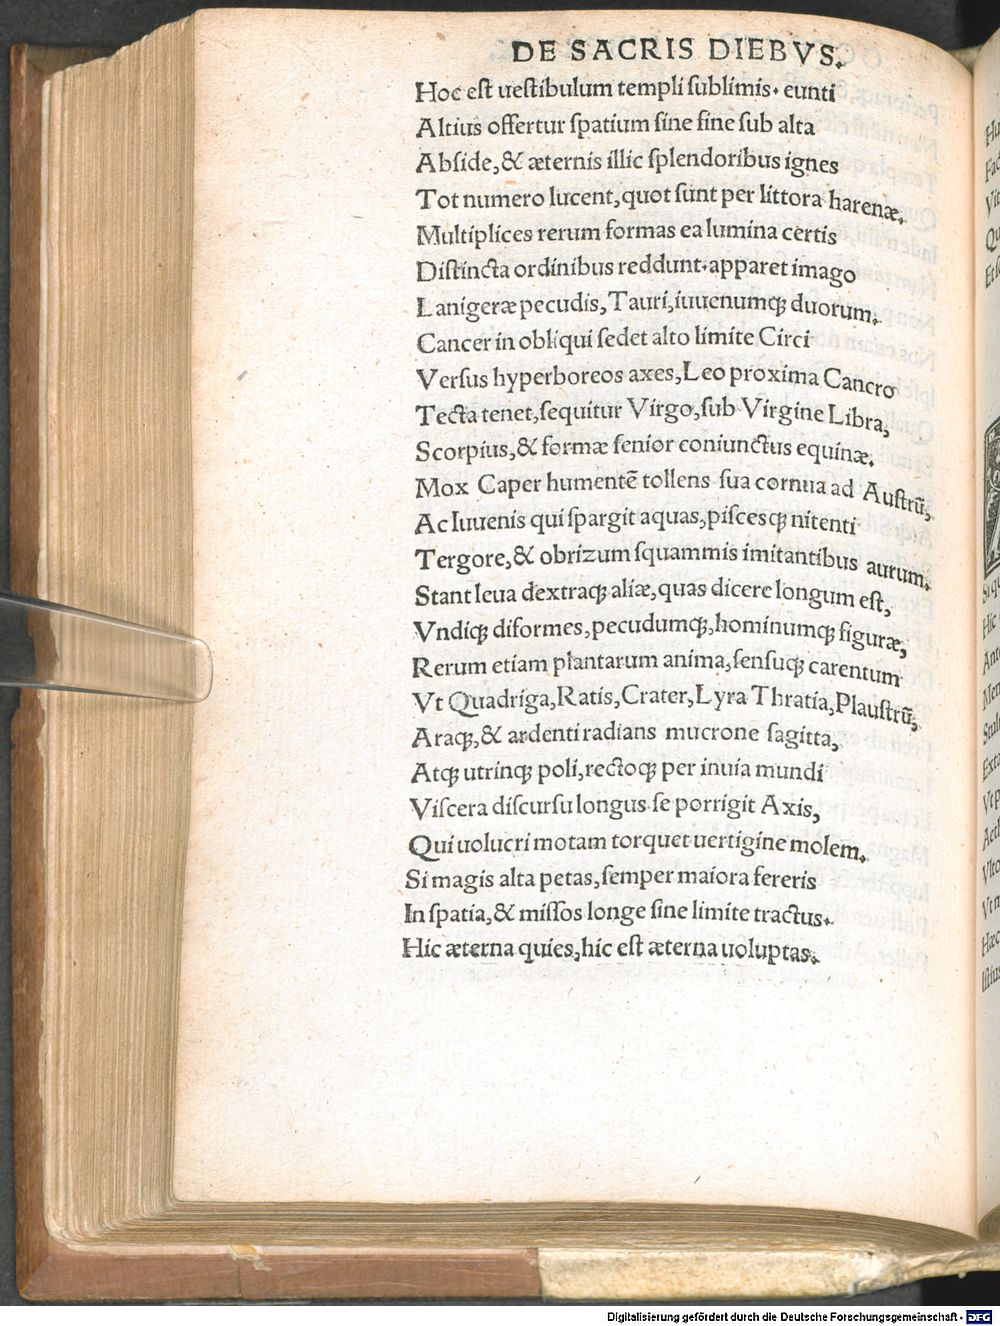 DE SACRIS DIEBVS.
Hoc est uestibulum templi sublimis. eunti
Altius offertur spatium sine fine sub alta
Abside, & æternis illic splendoribus ignes
Tot numero lucent, quot sunt per littora harenæ.
Multiplices rerum formas ea lumina certis
Distincta ordinibus reddunt. apparet imago
Lanigeræ pecudis, Tauri, iuuenumq; duorum.
Cancer in obliqui sedet alto limite Circi
Versus hyperboreos axes, Leo proxima Cancro
Tecta tenet, sequitur Virgo, sub Virgine Libra,
Scorpius, & formæ senior coniunctus equinæ.
Mox Caper humentē tollens sua cornua ad Austrū,
Ac Iuuenis qui spargit aquas, piscesq; nitenti
Tergore, & obrizum squammis imitantibus aurum.
Stant leua dextraq; aliæ, quas dicere longum est,
Vndiq; diformes, pecudumq;, hominumq; figuræ,
Rerum etiam plantarum anima, sensuq; carentum
Vt Quadriga, Ratis, Crater, Lyra Thratia, Plaustrū,
Araq;, & ardenti radians mucrone sagitta,
Atq; utrinq; poli, rectoq; per inuia mundi
Viscera discursu longus se porrigit Axis,
Qui uolucri motam torquet uertigine molem.
Si magis alta petas, semper maiora fereris
In spatia, & missos longe sine limite tractus.
Hic æterna quies, hic est æterna uoluptas.
Digitalisierung gefördert durch die Deutsche Forschungsgemeinschaft - DFG